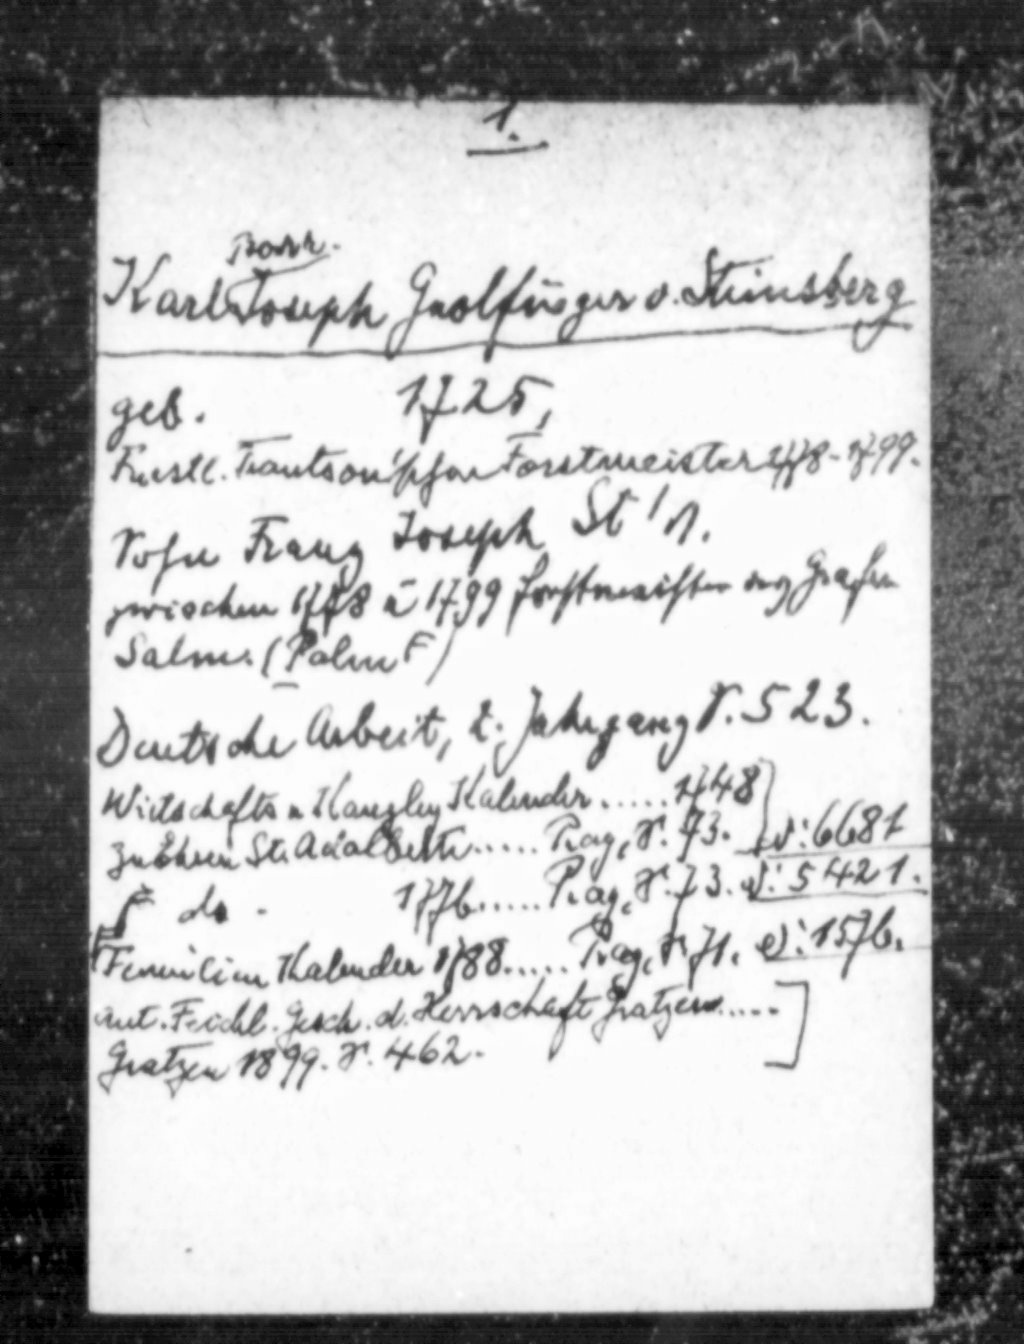 1.
Borr.
Karl Joseph Guolfinger v. Steinsberg
geb. 1725,
Fürstl. Trautson'scher Forstmeister 1778-1799.
Sohn Franz Joseph St
zwischen 1778 u 1799 Forstmeister Grafen
Salm. (Palm F)
Deutsche Arbeit, 2. Jahrgang S. 523.
Wirtschafts u Kanzley Kalender ..... 1748
zu Ehren St. Adalberti ..... Prag, S. 73. 6681
do. 1776 ..... Prag, S. 73. 5421.
Familien Kalender 1788 ..... Prag, S 71. 1576.
Ant. Teichl. Gesch. d. Herrschaft Gratzen .....
Gratzen 1899. S. 462.